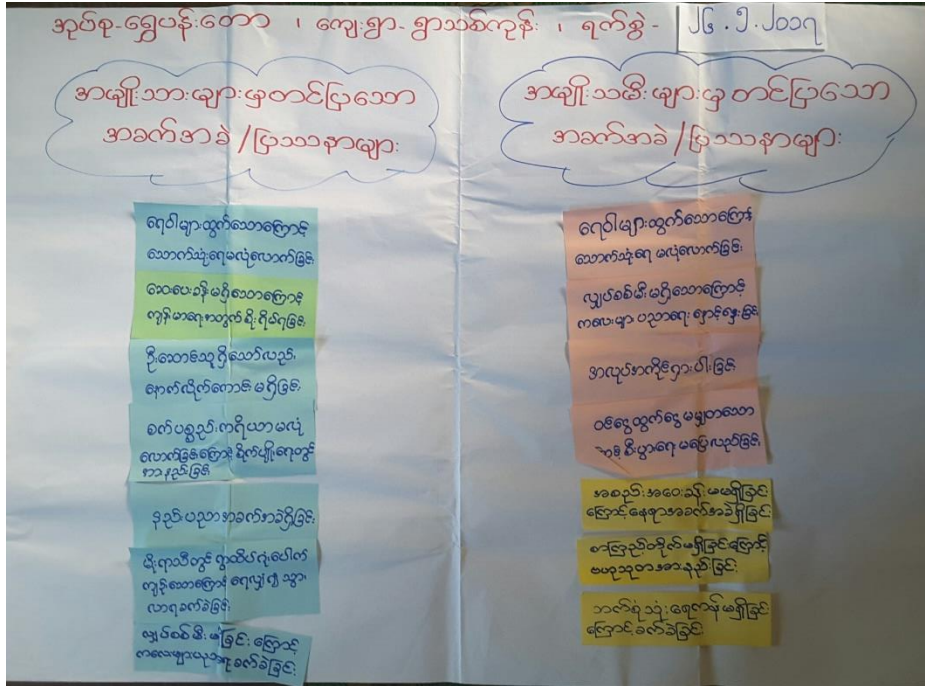 အုပ်စု-ရွှေပန်းတော ၊ ကျေးရွာ-ရွာသစ်ကုန်း ၊ ရက်စွဲ- ၂၆.၅.၂၀၁၇
အမျိုးသားများမှတင်ပြသော
အခက်အခဲ/ပြဿနာများ
ရေဝါများထွက်သောကြောင့်
သောက်သုံးရေမလုံလောက်ခြင်း
ဆေးပေးခန်းမရှိသောကြောင့်
ကျန်းမာရေးအတွက်စိုးရိမ်ရခြင်း
ဦးဆောင်သူရှိသော်လည်း
နောက်လိုက်ကောင်းမရှိခြင်း
စက်ပစ္စည်းကိရိယာမလုံ
လောက်ခြင်းကြောင့်စိုက်ပျိုးရေးတွင်
အားနည်းခြင်း
နည်းပညာအခက်အခဲရှိခြင်း
မိုးရာသီတွင် ရွာထိပ်ရုံးပေါက်
ကျဉ်းသောကြောင့် ရေလျှံ၍ သွား
လာရခက်ခဲခြင်း
လျှပ်စစ်မီးမရှိခြင်းကြောင့်
ကလေးများပညာရေးခက်ခဲခြင်း
အမျိုးသမီးများမှတင်ပြသော
အခက်အခဲ/ပြဿနာများ
ရေဝါများထွက်သောကြောင့်
သောက်သုံးရေ မလုံလောက်ခြင်း
လျှပ်စစ်မီးမရှိသောကြောင့်
ကလေးများပညာရေးနှောင့်နှေးခြင်း
အလုပ်အကိုင်ရှားပါးခြင်း
ဝင်ငွေထွက်ငွေမမျှတသော
စီးပွားရေးမပြေလည်ခြင်း
အစည်းအဝေးခန်းမမရှိခြင်း
ကြောင့်နေရာအခက်အခဲရှိခြင်း
စာကြည့်တိုက်မရှိခြင်းကြောင့်
ဗဟုသုတအားနည်းခြင်း
ဘက်စုံသုံးရေကန်မရှိခြင်း
ကြောင့်ခက်ခဲခြင်း